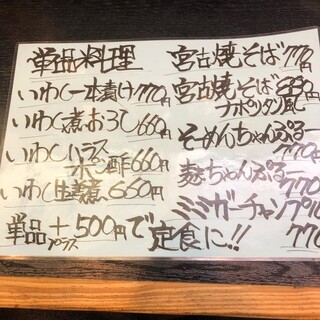 単品料理
いわし一本漬け 770円
いわし煮おろし 660円
いわしハラス
ポン酢 660円
いわし生姜煮 660円
単品+500円で
プラス
定食に!!
宮古焼そば 770円
宮古焼そば
ナポリタン風
そーめんちゃんぷるー
770円
麩ちゃんぷるー
770
ミミガーチャンプル
770